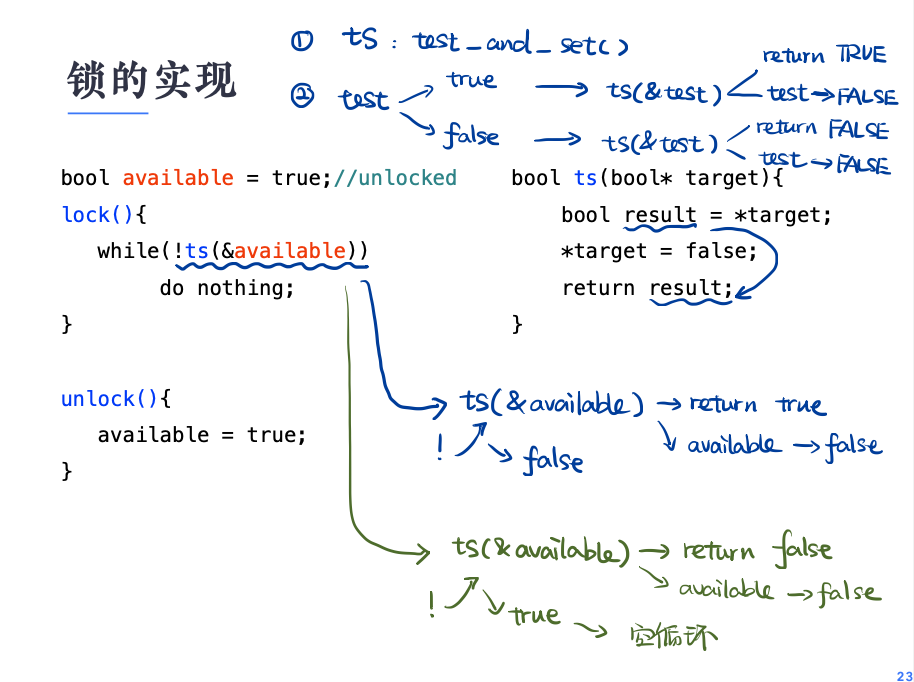 ① ts : test_and_set()
锁的实现
② test
true → ts(&test)
return TRUE
test→FALSE
false → ts(&test)
return FALSE
test→FALSE
bool available = true;//unlocked
lock(){
while(!ts(&available))
do nothing;
}
unlock(){
available = true;
}
bool ts(bool* target){
bool result = *target;
*target = false;
return result;
}
ts(&available) → return true
available → false
! false
ts(&available) → return false
available → false
! true → 空循环
23